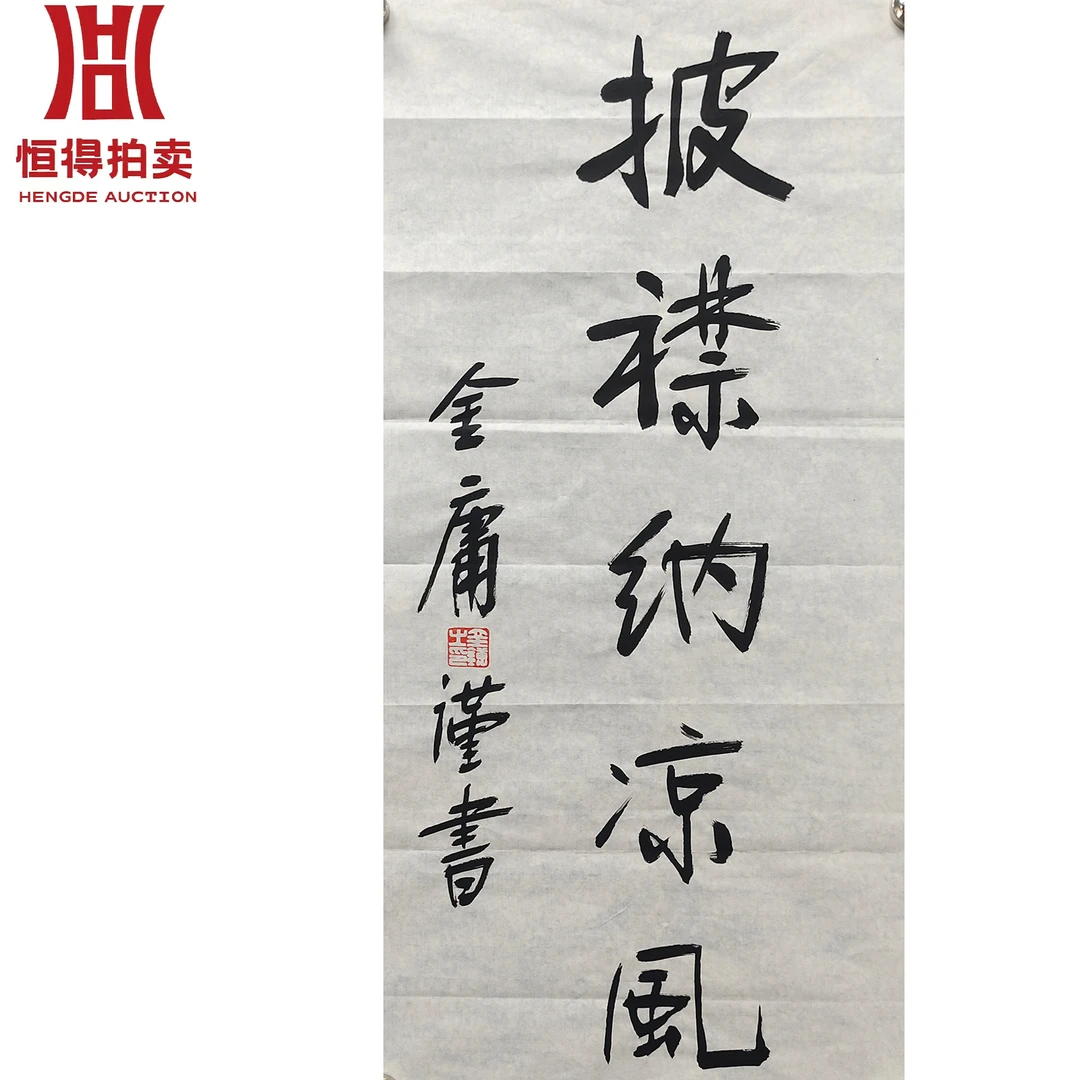 恒得拍卖
HENGDE AUCTION
披襟纳凉風
金庸
謹書